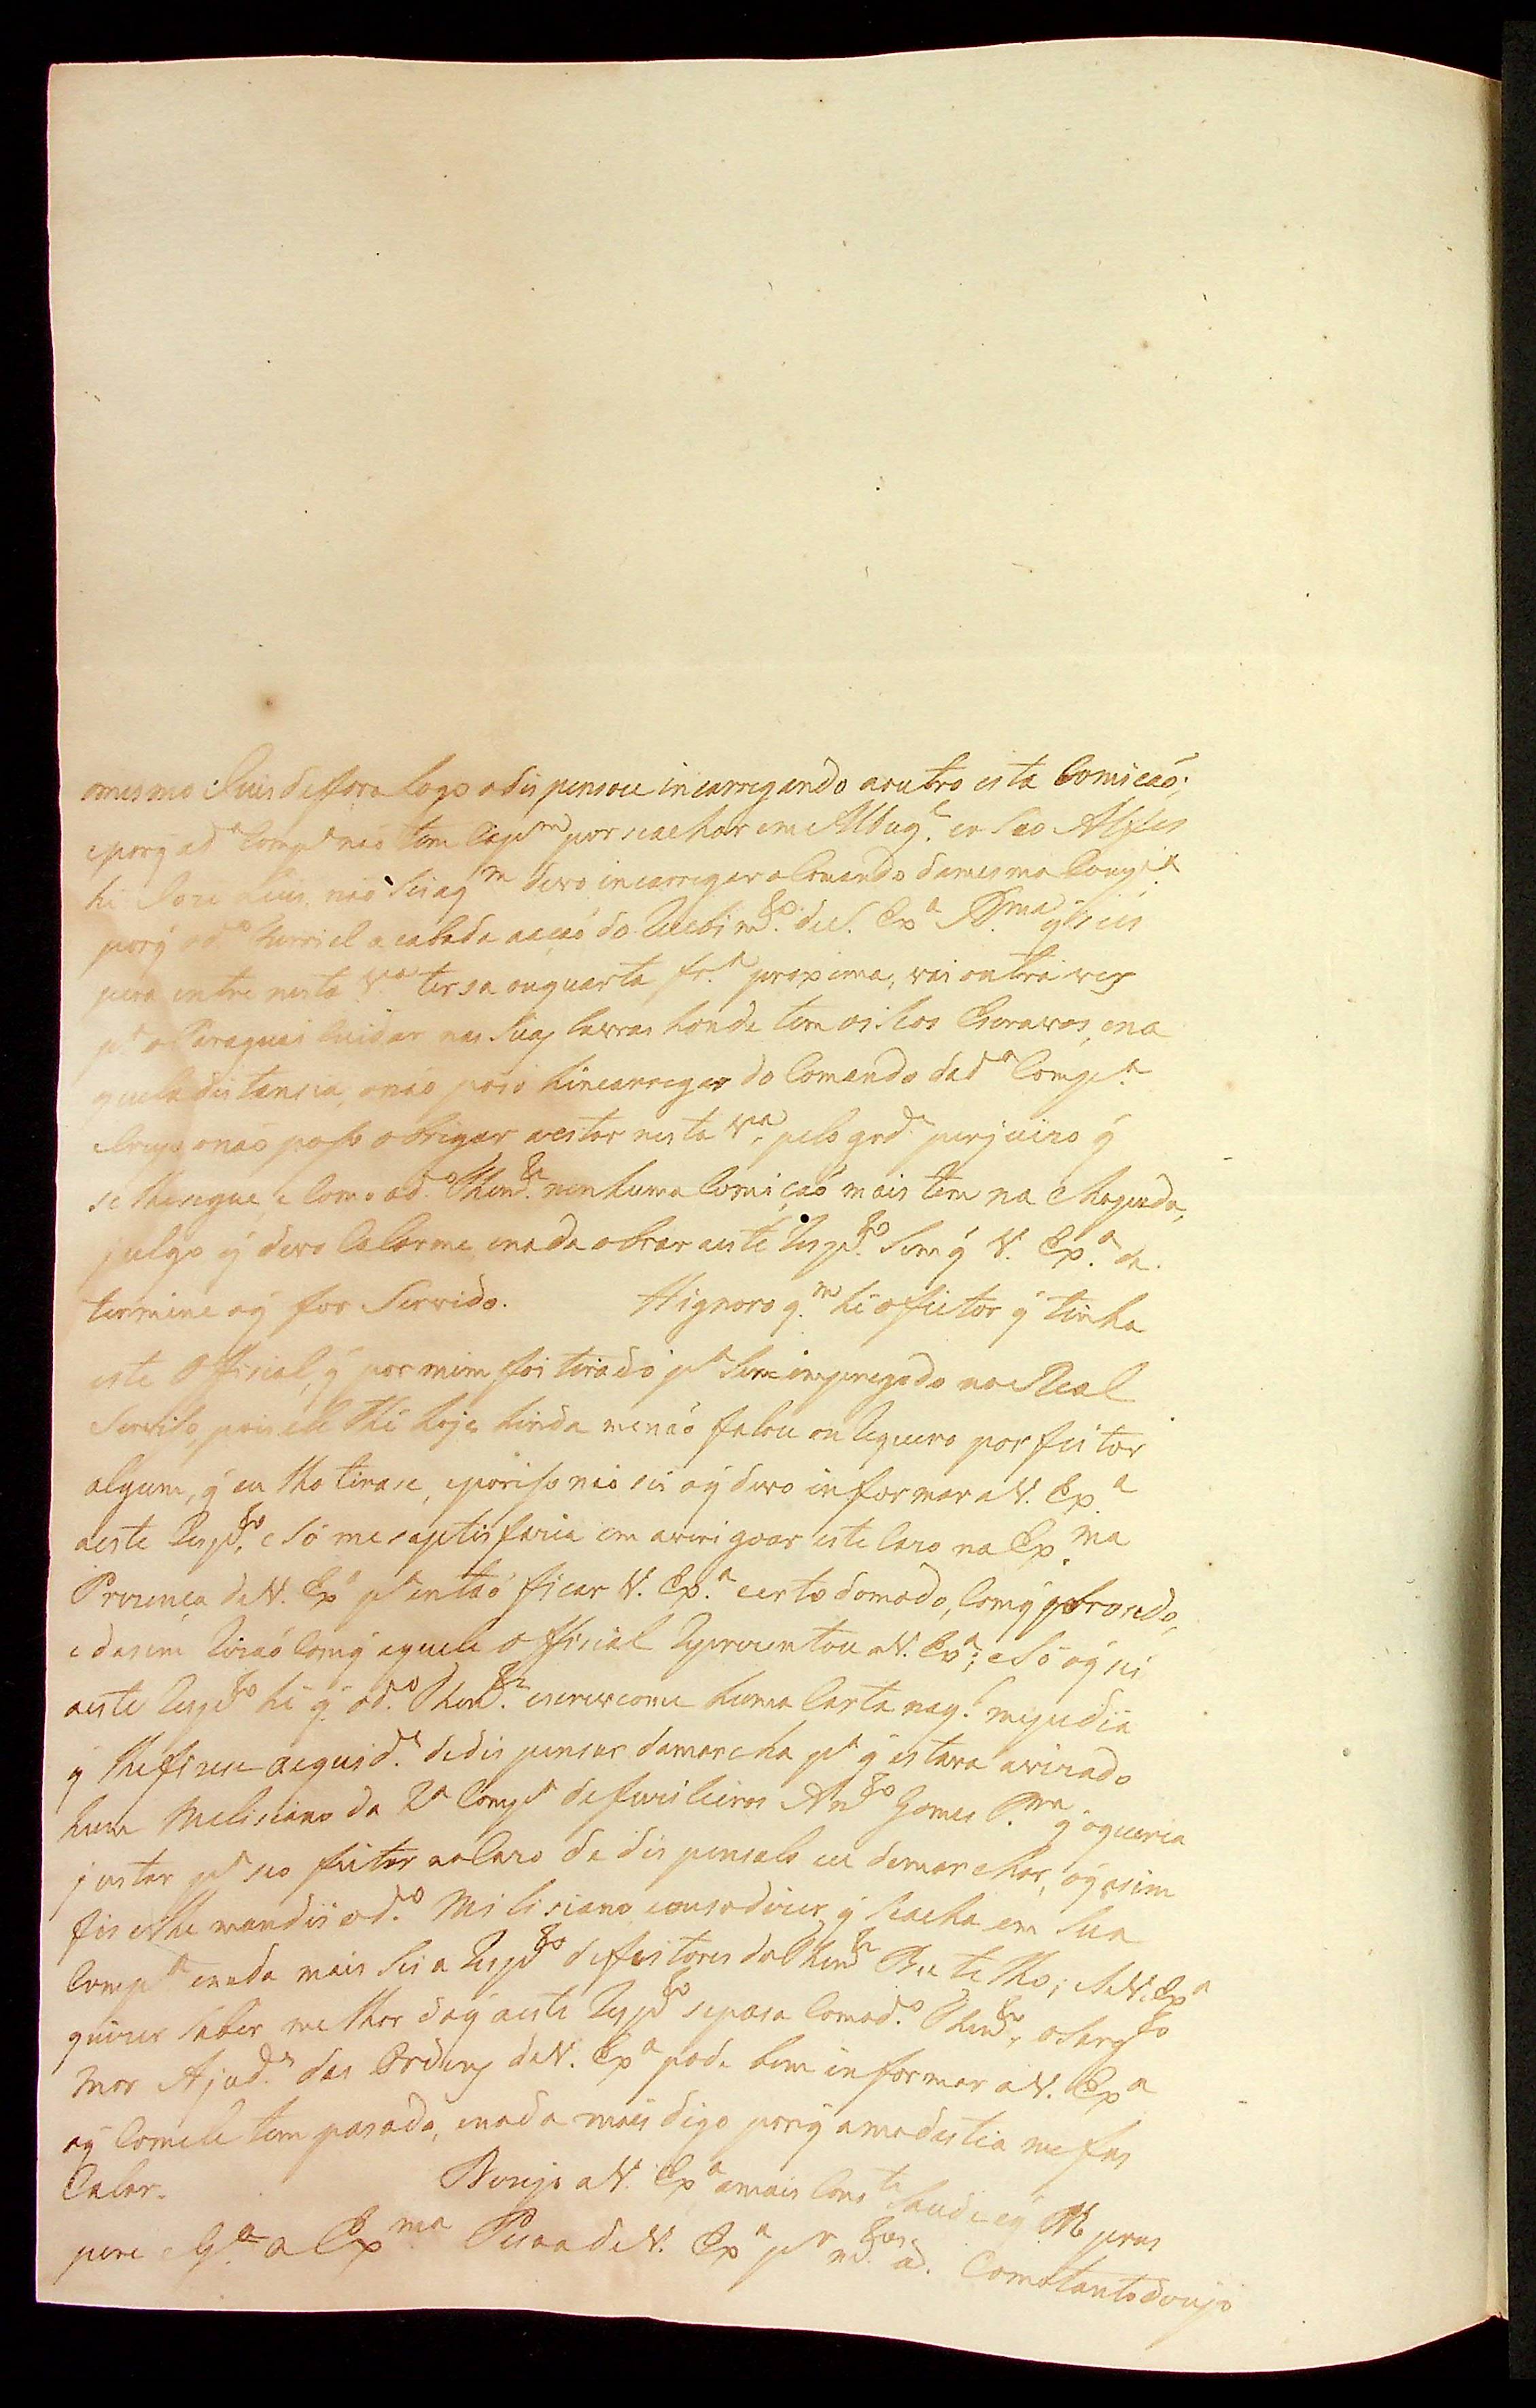 omesmo Juis deffora logo odispensou incarregando aoutro esta Comicaó;
eporq̃ ad.ª Comp.ª naó tem Cap.m por seachar em Albuq.e eo Seo Alferes
hé Joze Luis, naó Sei aq.m devo incarregar o Comando damesma Comp.ª
porq̃ od.º Curriel acabada aação do Recebim.to deS. Ex.ª R.ma q̃ seés
pera entre nesta V.ª tersa ouquarta fr.ª proxima, vai outra ves
p.ª o Paraguai Cuidar nas Suas lavras honde tem os Seos Escravos, ena
quela distansia, onaó poso hincarregar do Comando dad.ª Comp.ª
elogo onaó posso obrigar aestar nesta V.ª, pelo grd.e perjuizo q̃
se lhesegue, e Como od.º Then.te nenhuma Comicaó mais tem na Chapada,
julgo q̃ devo Calarme, enada obrar aeste Resp.to Sem q̃ V. Ex.ª de
termine oq̃ for Servido. Hignoro q.m hé ofeitor q̃ tinha
este Official, q̃ por mim foi tirado p.ª Ser impregado no Real
Serviso, pois elle thé hoje hinda menaó falou ou Requereo por feitor
algum, q̃ eu lho tirase, eporiso naó sei oq̃ devo informar aV. Ex.ª
aeste Resp.to, e Só me saptisfaria em averigoar este Cazo na Ex.ma
Prezença deV. Ex.ª p.ª entaó ficar V. Ex.ª certo domodo, Comq̃ obro sedo,
e dasem Razaó Comq̃ aquele Official Reprezentou aV. Ex.ª; eSó oq̃ sei
aeste Resp.to hé q̃ od.º Then.te escreveome huma Carta naq.l mepedia
q̃ lhefizese aequid.e dedispensar damarcha p.ª q̃ estava avizado
hum Milisiano da 2.ª Comp.ª defuzileiros Ant.º Gomes P.ra q̃ oqueria
justar p.ª seo feitor noCazo de dispensalo eu demarchar, oq̃ asim
fis elhe mandei od.º Milisiano
Comp.ª enada mais Sei a Resp.to deffeitores do Then.te Butelho; eSeV. Ex.ª
quizer Saber melhor doq̃ aeste Resp.to sepasa Comod.º Then.te, oSarg.to
Mor Ajud.e das Ordens deV. Ex.ª pode bem informar aV. Ex.ª
oq̃ Comele tem pasado, enada mais digo porq̃ amodestia mefas
Calar. Dezejo aV. Ex.ª amais Cons.te Saude eq̃
pere eG.e a Ex.ma Pesoa deV. Ex.ª p.r m.tos a. Comotantodezejo